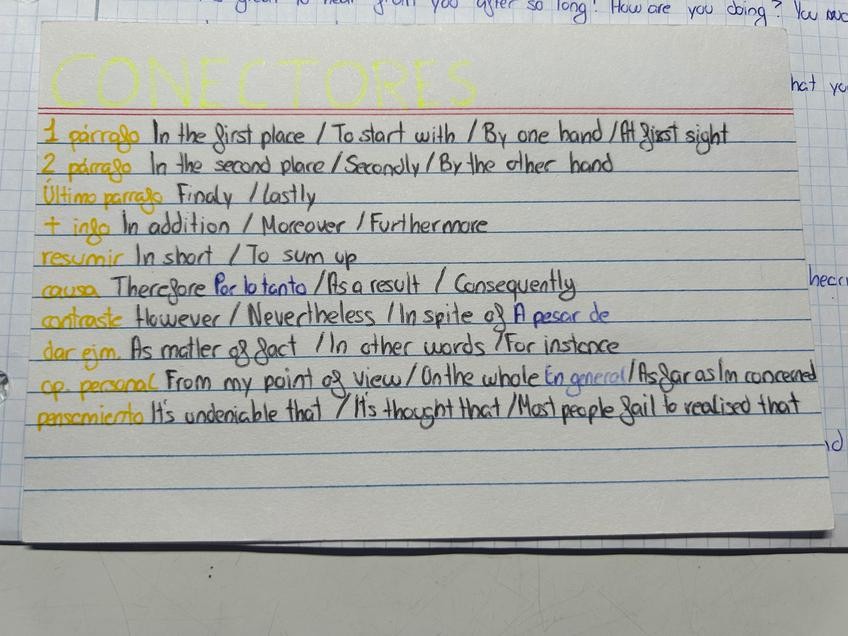 great to hear from you after so long! How are you doing? You
hat
CONECTORES
1 párrafo In the first place / To start with / By one hand / At first sight
2 párrafo In the second place / Secondly / By the other hand
Último parrafo Finaly / Lastly
+ info In addition / Moreover / Furthermore
resumir In short / To sum up
causa Therefore Por lo tanto / As a result / Consequently
contraste However / Nevertheless / In spite of A pesar de
dar ejm. As matler of fact / In other words / For instance
op. personal From my point of view / On the whole En general / As far as Im concerned
pensamiento It's undeniable that / It's thought that / Most people fail to realised that